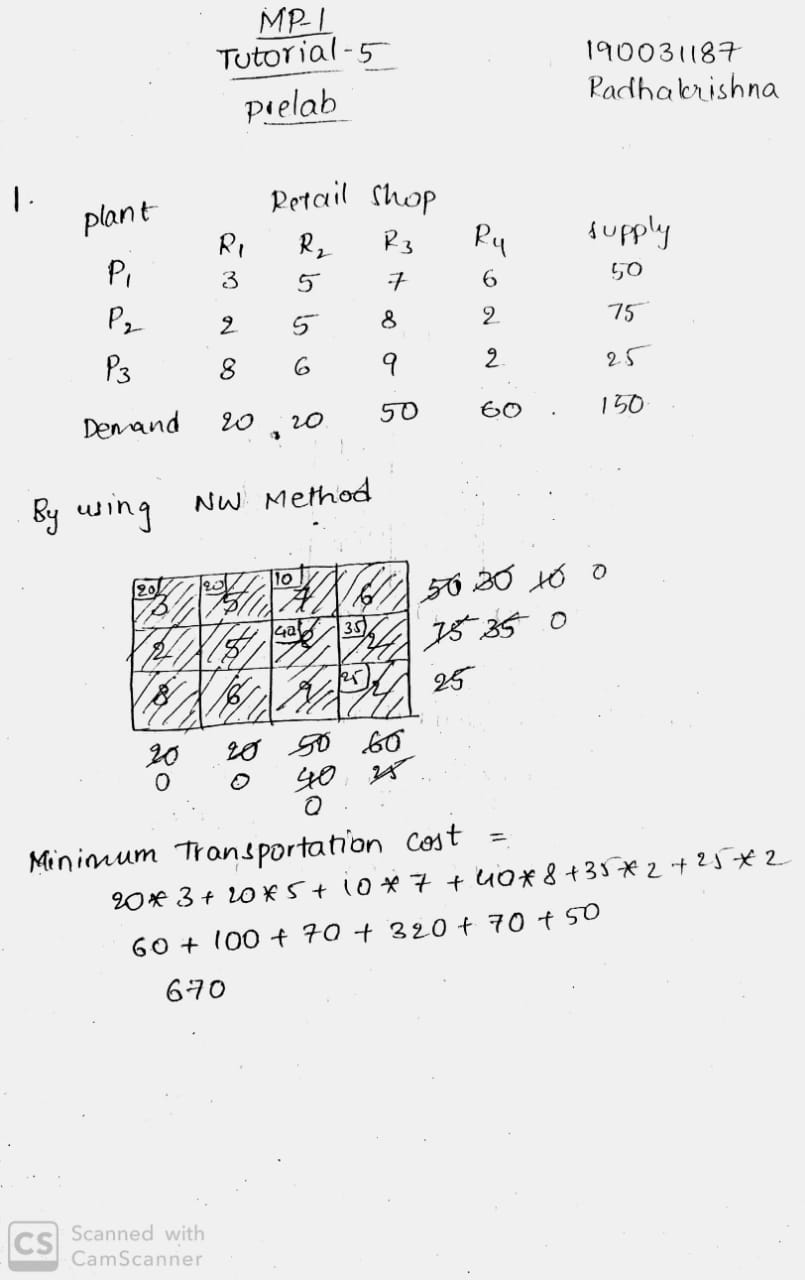 MP-1
Tutorial-5
190031187
Radhakrishna
prelab
1.
plant Retail Shop
R1 R2 R3 R4 supply
P1 3 5 7 6 50
P2 2 5 8 2 75
P3 8 6 9 2 25
Demand 20 20 50 60 150
By using NW Method
20 3 20 5 10 7 6 50 30 10 0
2 5 40 8 35 2 75 35 0
8 6 9 25 2 25
20 20 50 60
0 0 40 25
0
Minimum Transportation Cost =
20*3+20*5+10*7+40*8+35*2+25*2
60+100+70+320+70+50
670
CS Scanned with
CamScanner